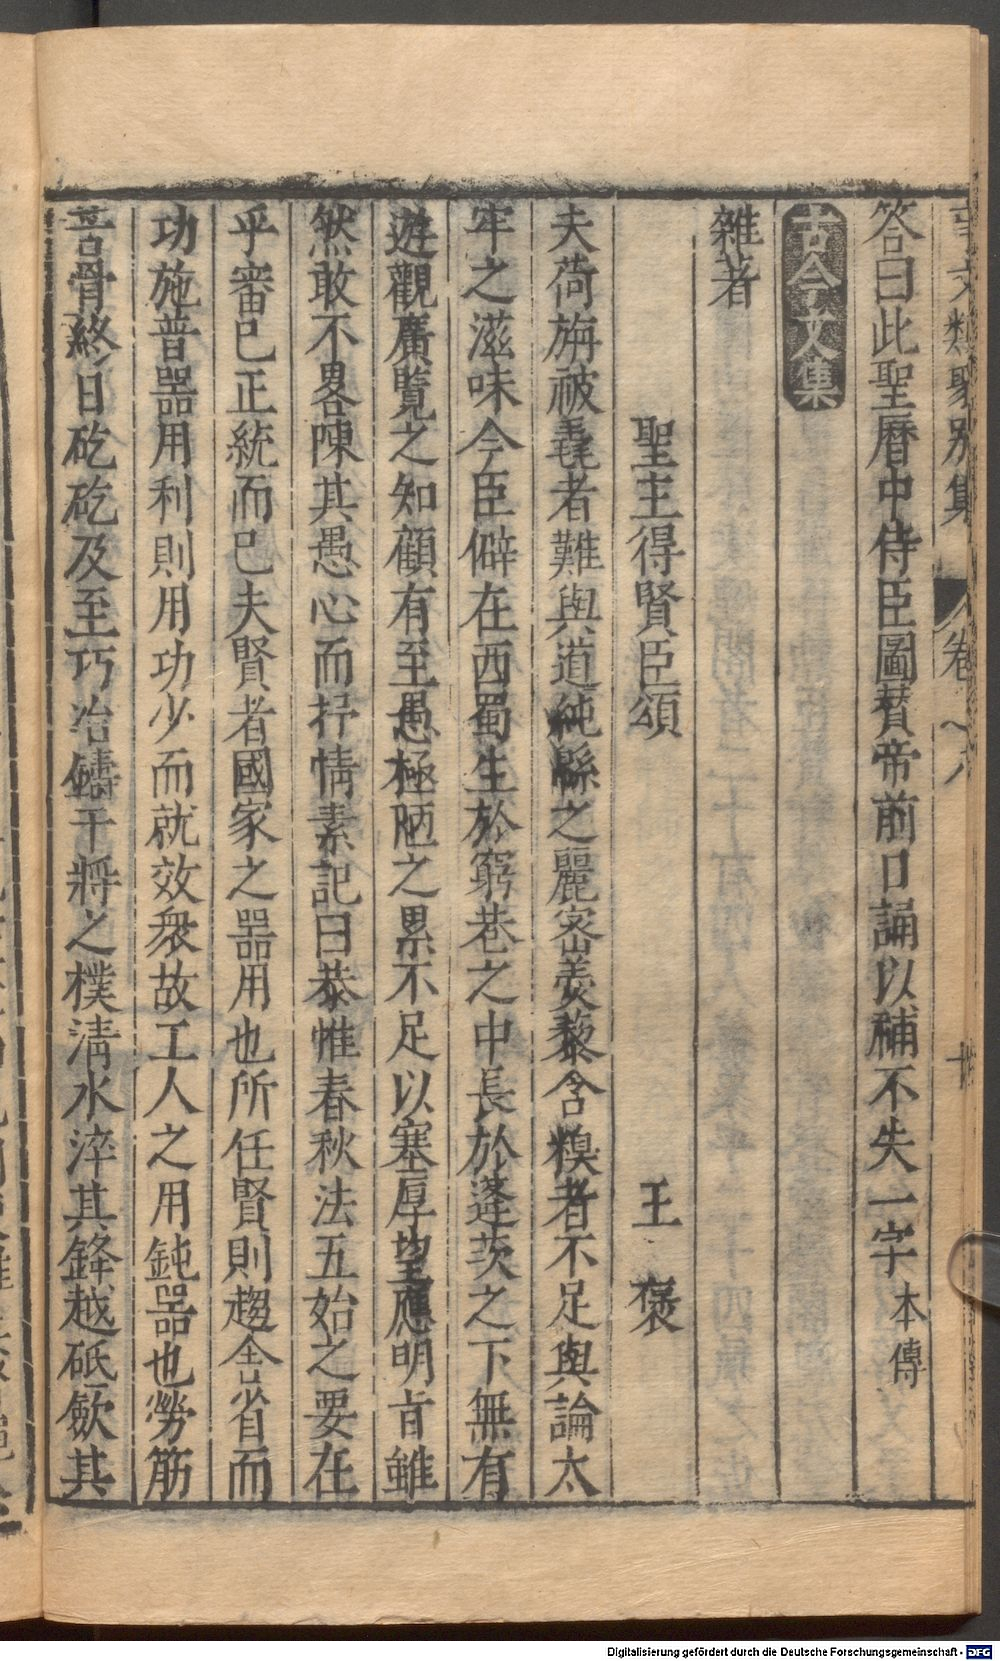 事文類聚別集 卷八 十
答曰此聖曆中侍臣圖賛帝前口誦以補不失一字本傳
古今文集
雜著
聖主得賢臣頌 王褒
夫荷旃被毳者難與道純緜之麗密羮藜含糗者不足與論太
牢之滋味今臣僻在西蜀生於窮巷之中長於蓬茨之下無有
遊觀廣覽之知顧有至愚極陋之累不足以塞厚望應明旨雖
然敢不畧陳其愚心而抒情素記曰恭惟春秋法五始之要在
乎審已正統而已夫賢者國家之器用也所任賢則趨舍省而
功施普器用利則用功少而就效衆故工人之用鈍器也勞筋
苦骨終日矻矻及至巧冶鑄干將之樸淸水淬其鋒越砥歛其
Digitalisierung gefördert durch die Deutsche Forschungsgemeinschaft - DFG